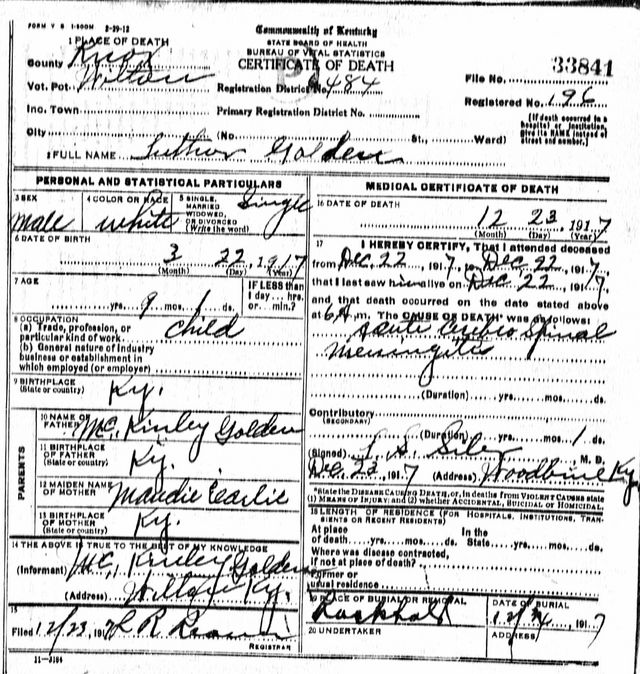 FORM V S 1-500M 2-29-12
Commonwealth of Kentucky
STATE BOARD OF HEALTH
BUREAU OF VITAL STATISTICS
CERTIFICATE OF DEATH
1 PLACE OF DEATH
County Knox
Vot. Pct. Wilton
Inc. Town
City
Registration District No. 484
Primary Registration District No.
(No. St., Ward)
File No. 33841
Registered No. 196
(If death occurred in a hospital or institution, give its NAME instead of street and number.)
2 FULL NAME Luther Golden
PERSONAL AND STATISTICAL PARTICULARS
3 SEX male
4 COLOR OR RACE white
5 SINGLE, MARRIED WIDOWED, OR DIVORCED (Write the word) Single
6 DATE OF BIRTH
3 22, 1917
(Month) (Day) (Year)
7 AGE
yrs. 9 mos. 1 ds.
IF LESS than 1 day... hrs. or min.?
8 OCCUPATION
(a) Trade, profession, or particular kind of work child
(b) General nature of industry business or establishment in which employed (or employer)
9 BIRTHPLACE
(State or country) Ky.
PARENTS
10 NAME OF FATHER Mc. Kinley Golden
11 BIRTHPLACE OF FATHER
(State or country) Ky.
12 MAIDEN NAME OF MOTHER Maudie
13 BIRTHPLACE OF MOTHER
(State or country) Ky.
14 THE ABOVE IS TRUE TO THE BEST OF MY KNOWLEDGE
(Informant) Mc. Kinley Golden
(Address) Ky.
15
Filed 12/23, 191
REGISTRAR
11-3184
MEDICAL CERTIFICATE OF DEATH
16 DATE OF DEATH
12 23, 1917
(Month) (Day) (Year)
17 I HEREBY CERTIFY, That I attended deceased
from Dec. 22, 1917, to Dec 22, 1917,
that I last saw him alive on Dec 22, 1917,
and that death occurred on the date stated above
at 6 A m. The CAUSE OF DEATH* was as follows
acute cerebro spinal
meningitis
(Duration) yrs. mos. ds.
Contributory
(SECONDARY)
(Duration) yrs. mos. 1 ds.
(Signed) M. D.
Dec 23, 1917 (Address) Woodbine Ky.
*State the DISEASE CAUSING DEATH, or, in deaths from VIOLENT CAUSES state (1) MEANS OF INJURY; and (2) whether ACCIDENTAL, SUICIDAL or HOMICIDAL.
18 LENGTH OF RESIDENCE (FOR HOSPITALS, INSTITUTIONS, TRANSIENTS OR RECENT RESIDENTS)
At place of death yrs. mos. ds. In the State yrs. mos. ds.
Where was disease contracted, if not at place of death?
Former or usual residence
19 PLACE OF BURIAL OR REMOVAL Rockhold
DATE OF BURIAL
12/24, 1917
20 UNDERTAKER
ADDRESS